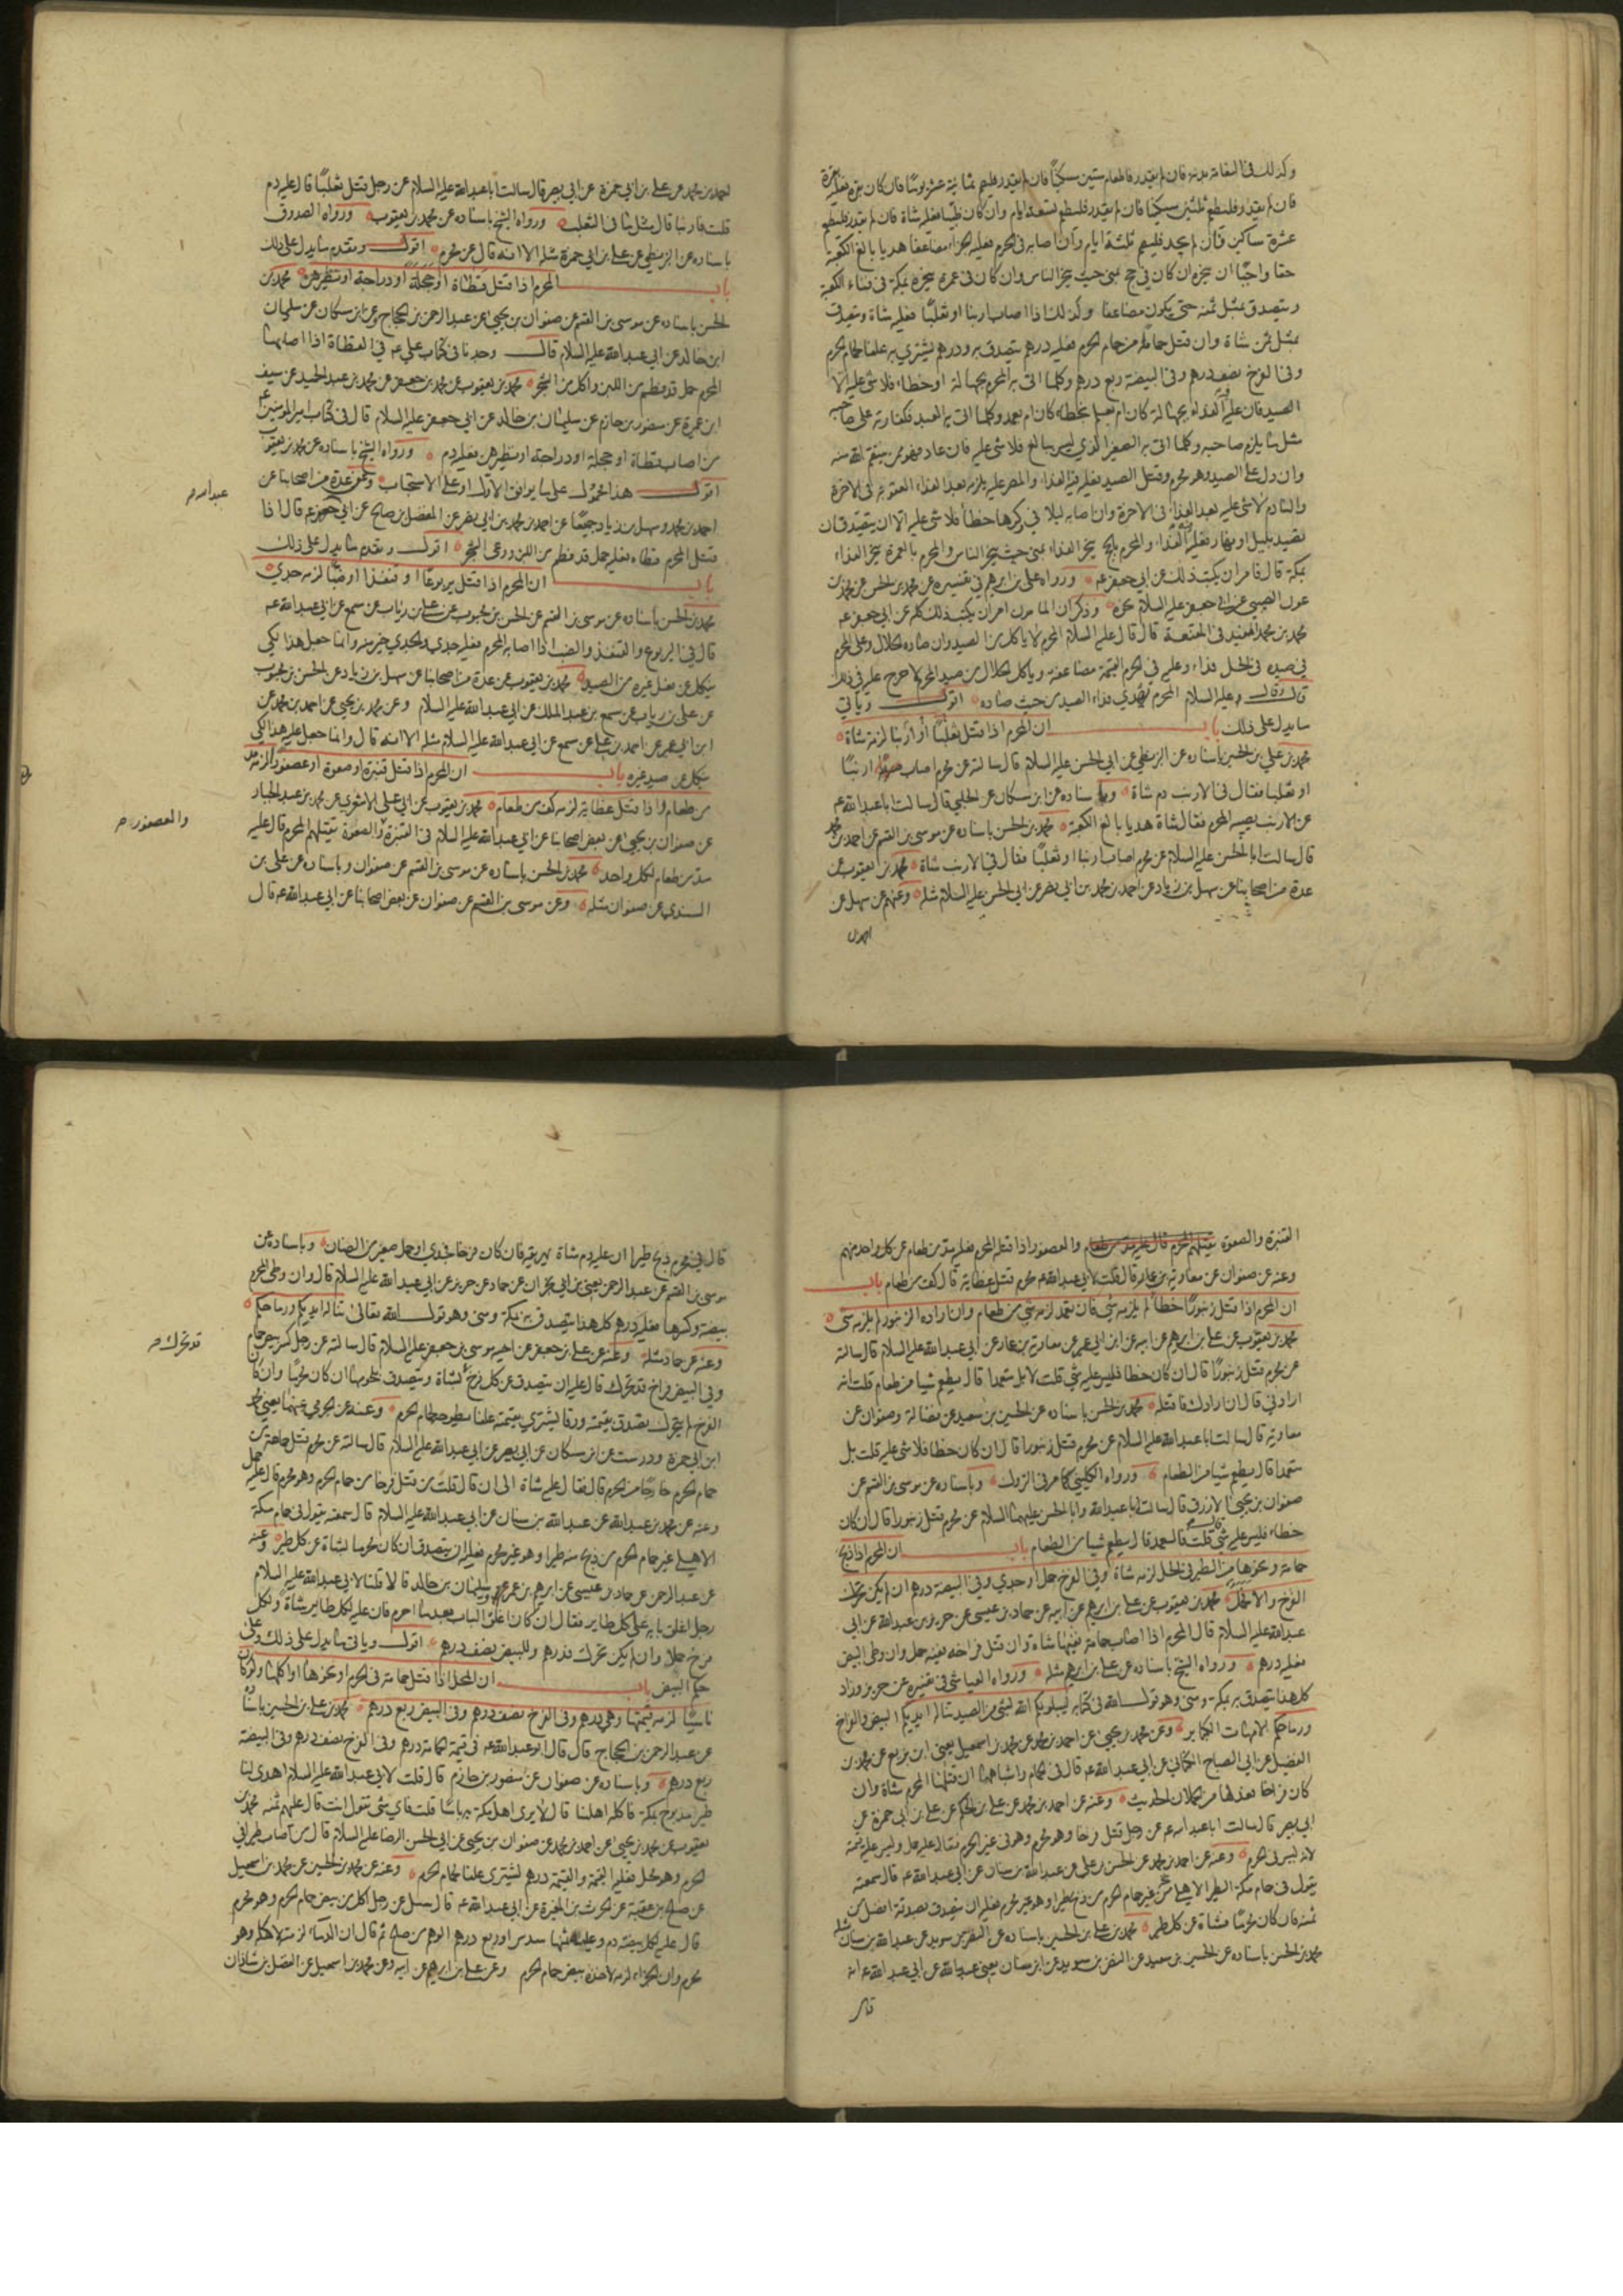 وكذلك في النعامة بدنة فان لم يقدر فاطعام ستين مسكينا فان لم يقدر فليصم ثمانية عشر يوما فان كان بقرة فعليه بقرة
فان لم يقدر فليطعم ثلثين مسكينا فان لم يقدر فليصم تسعة ايام وان كان ظبيا فعليه شاة فان لم يقدر فليطعم
عشرة مساكين فان لم يجد فليصم ثلثة ايام وان اصابه في الحرم فعليه الجزاء مضاعفا هديا بالغ الكعبة
حقا واجبا ان ينحره ان كان في حج بمنى حيث ينحر الناس وان كان في عمرة ينحره بمكة في فناء الكعبة
ويتصدق بمثل ثمنه حتى يكون مضاعفا وكذلك اذا اصاب ارنبا او ثعلبا فعليه شاة ويتصدق
بمثل ثمن شاة وان قتل حماما من حمام الحرم فعليه درهم يتصدق به ودرهم يشتري به علفا لحمام الحرم
وفي الفرخ نصف درهم وفي البيضة ربع درهم وكلما اتى به المحرم بجهالة او خطاء فلا شئ عليه الا
الصيد فان عليه الفداء بجهالة كان ام بعلم بخطاء كان ام بعمد وكلما اتى به العبد فكفارته على صاحبه
مثل ما يلزم صاحبه وكلما اتى به الصغير الذي ليس ببالغ فلا شئ عليه فان عاد فهو ممن ينتقم الله منه
وان دل على الصيد وهو محرم وقتل الصيد فعليه فيه الفداء والمصر عليه يلزمه بعد الفداء العقوبة في الاخرة
والنادم لا شئ عليه بعد الفداء في الاخرة وان اصابه ليلا في وكرها خطأ فلا شئ عليه الا ان يتصيد فان
تصيد بليل او نهار فعليه الفداء والمحرم بالحج ينحر الفداء بمنى حيث ينحر الناس والمحرم بالعمرة ينحر الفداء
بمكة قال فامر ان يكتب ذلك عن ابي جعفر ع ورواه علي بن ابراهيم في تفسيره عن محمد بن الحسن عن محمد بن
عون النصيبي عن ابي جعفر عليه السلام نحوه وذكر ان المامون امر ان يكتب ذلك كله عن ابي جعفر ع
محمد بن محمد المفيد في المقنعة قال قال عليه السلام المحرم لا ياكل من الصيد وان صاده الحلال وعلى المحرم
في صيده في الحل فداء وعليه في الحرم القيمة مضاعفة وياكل الحلال من صيد المحرم لا حرج عليه في ذلك
قال وقال عليه السلام المحرم يهدي فداء الصيد من حيث صاده اقول وياتي
ما يدل على ذلك باب ان المحرم اذا قتل ثعلبا او ارنبا لزمه شاة
محمد بن علي بن الحسين باسناده عن البزنطي عن ابي الحسن عليه السلام قال سالته عن محرم اصاب ارنبا
او ثعلبا فقال في الارنب دم شاة وباسناده عن ابن مسكان عن الحلبي قال سالت ابا عبد الله ع
عن الارنب يصيبه المحرم فقال شاة هديا بالغ الكعبة محمد بن الحسن باسناده عن موسى بن القسم عن احمد بن محمد
قال سالت ابا الحسن عليه السلام عن محرم اصاب ارنبا او ثعلبا فقال في الارنب شاة محمد بن يعقوب عن
عدة من اصحابنا عن سهل بن زياد عن احمد بن محمد بن ابي نصر عن ابي الحسن عليه السلام مثله وعنهم عن سهل عن
احمد بن
احمد بن محمد عن علي بن ابي حمزة عن ابي بصير قال سالت ابا عبد الله عليه السلام عن رجل قتل ثعلبا قال عليه دم
قلت فارنبا قال مثل ما في الثعلب ورواه الشيخ باسناده عن محمد بن يعقوب ورواه الصدوق
باسناده عن البزنطي عن علي بن ابي حمزة مثله الا انه قال عن محرم اقول وتقدم ما يدل على ذلك
باب المحرم اذا قتل قطاة او حجلة او دراجة او نظيرهن محمد بن
الحسن باسناده عن موسى بن القسم عن صفوان بن يحيى عن عبد الرحمن بن الحجاج وعن ابن مسكان عن سليمان
ابن خالد عن ابي عبد الله عليه السلام قال وجدنا في كتاب علي ع في القطاة اذا اصابها
المحرم حمل قد فطم من اللبن واكل من الشجر محمد بن يعقوب عن محمد بن جعفر عن محمد بن عبد الحميد عن سيف
ابن عميرة عن منصور بن حازم عن سليمان بن خالد عن ابي جعفر عليه السلام قال في كتاب امير المؤمنين ع
من اصاب قطاة او حجلة او دراجة او نظيرهن فعليه دم ورواه الشيخ باسناده عن محمد بن يعقوب
اقول هذا محمول على ما يوافق الاول او على الاستحباب وعن عدة من اصحابنا عن
عبد الله م
احمد بن محمد وسهل بن زياد جميعا عن احمد بن محمد بن ابي نصر عن المفضل بن صالح عن ابي جعفر ع قال اذا
قتل المحرم قطاة فعليه حمل قد فطم من اللبن ورعى الشجر اقول وتقدم ما يدل على ذلك
باب ان المحرم اذا قتل يربوعا او قنفذا او ضبا لزمه جدي
محمد بن الحسن باسناده عن موسى بن القسم عن الحسن بن محبوب عن علي بن رئاب عن مسمع عن ابي عبد الله ع
قال في اليربوع والقنفذ والضب اذا اصابه المحرم فعليه جدي والجدي خير منه وانما جعل هذا لكي
ينكل عن فعل غيره من الصيد محمد بن يعقوب عن عدة من اصحابنا عن سهل بن زياد عن الحسن بن محبوب
عن علي بن رياب عن مسمع بن عبد الملك عن ابي عبد الله عليه السلام وعن محمد بن يحيى عن احمد بن محمد عن
ابن ابي عمير عن احمد بن علي عن مسمع عن ابي عبد الله عليه السلام مثله الا انه قال وانما جعل عليه هذا لكي
ينكل عن صيد غيره باب ان المحرم اذا قتل قنبرة او صعوة او عصفورا لزمه مد
من طعام واذا قتل عظاية لزمه كف من طعام محمد بن يعقوب عن ابي علي الاشعري عن محمد بن عبد الجبار
والعصفور م
عن صفوان بن يحيى عن بعض اصحابنا عن ابي عبد الله عليه السلام في القنبرة والصعوة يقتلهم المحرم قال عليه
مد من طعام لكل واحد محمد بن الحسن باسناده عن موسى بن القسم عن صفوان وباسناده عن علي بن
السندي عن صفوان مثله وعن موسى بن القسم عن صفوان عن بعض اصحابنا عن ابي عبد الله ع قال
القنبرة والصعوة والعصفور اذا قتله المحرم فعليه مد من طعام عن كل واحد منهم
وعنه عن صفوان عن معاوية بن عمار قال قلت لابي عبد الله ع محرم قتل عظاية قال كف من طعام باب
ان المحرم اذا قتل زنبورا خطأ لم يلزمه شئ فان تعمد لزمه شئ من طعام وان اراده الزنبور لم يلزمه شئ
محمد بن يعقوب عن علي بن ابراهيم عن ابيه عن ابن ابي عمير عن معاوية بن عمار عن ابي عبد الله عليه السلام قال سالته
عن محرم قتل زنبورا قال ان كان خطا فليس عليه شئ قلت لا بل متعمدا قال يطعم شيا من طعام قلت انه
ارادني قال ان ارادك فاقتله محمد بن الحسن باسناده عن الحسين بن سعيد عن فضالة وصفوان عن
معاوية قال سالت ابا عبد الله عليه السلام عن محرم قتل زنبورا قال ان كان خطا فلا شئ عليه قلت بل
متعمدا قال يطعم شيا من الطعام ورواه الكليني كما مر في التروك وباسناده عن موسى بن القسم عن
صفوان بن يحيى الازرق قال سالت ابا عبد الله وابا الحسن عليهما السلام عن محرم قتل زنبورا قال ان كان
خطاء فليس عليه شئ قلت فالعمد قال يطعم شيا من الطعام باب ان المحرم اذا ذبح
حمامة ونحوها من الطير في الحل لزمه شاة وفي الفرخ حمل او جدي وفي البيضة درهم ان لم يكن تحرك
الفرخ والا فحمل محمد بن يعقوب عن علي بن ابراهيم عن ابيه عن حماد بن عيسى عن حريز بن عبد الله عن ابي
عبد الله عليه السلام قال المحرم اذا اصاب حمامة ففيها شاة وان قتل فراخه ففيه حمل وان وطى البيض
فعليه درهم ورواه الشيخ باسناده عن علي بن ابراهيم مثله ورواه العياشي في تفسيره عن حريز وزاد
كل هذا يتصدق به بمكة ومنى وهو قول الله في كتابه ليبلونكم الله بشئ من الصيد تناله ايديكم البيض والفراخ
ورماحكم الامهات الكبار وعن محمد بن يحيى عن احمد بن محمد عن محمد بن اسمعيل يعني ابن بزيع عن محمد بن
الفضيل عن ابي الصباح الكناني عن ابي عبد الله ع قال في الحمام واشباهها ان قتلها المحرم شاة وان
كان فراخا فعدلها من الحملان الحديث وعنه عن احمد بن محمد عن علي بن الحكم عن علي بن ابي حمزة عن
ابي بصير قال سالت ابا عبد الله ع عن رجل قتل فرخا وهو محرم وهو في غير الحرم فقال عليه حمل وليس عليه قيمة
لانه ليس في الحرم وعنه عن احمد بن محمد عن الحسن بن علي عن عبد الله بن سنان عن ابي عبد الله ع قال سمعته
يقول في حمام مكة الطير الاهلي من غير حمام الحرم من ذبح طيرا وهو غير محرم فعليه ان يتصدق بصدقة افضل من
ثمنه فان كان محرما فشاة عن كل طير محمد بن علي بن الحسين باسناده عن النضر بن سويد عن عبد الله بن سنان مثله
محمد بن الحسن باسناده عن الحسين بن سعيد عن النضر بن سويد عن ابن سنان يعني عبد الله عن ابي عبد الله ع انه
قال
قال في محرم ذبح طيرا ان عليه دم شاة يهريقه فان كان فرخا فجدي او حمل صغير من الضان وباسناده عن
موسى بن القسم عن عبد الرحمن يعني بن ابي نجران عن حماد عن حريز عن ابي عبد الله عليه السلام قال وان وطئ المحرم
بيضة وكسرها فعليه درهم كل هذا يتصدق به بمكة ومنى وهو قول الله تعالى تناله ايديكم ورماحكم
وعنه عن حماد مثله وعنه عن علي بن جعفر عن اخيه موسى بن جعفر عليه السلام قال سالته عن رجل كسر بيض حمام
قد تحرك م
وفي البيض فراخ قد تحرك قال عليه ان يتصدق عن كل فرخ بشاة ويتصدق بلحومها ان كان محرما وان كان
الفرخ لم يتحرك تصدق بقيمته ورقا يشتري بقيمته علفا يطرحه لحمام الحرم وعنه عن الجرمي عنهما يعني محمد
ابن ابي حمزة ودرست عن ابن مسكان عن ابي بصير عن ابي عبد الله عليه السلام قال سالته عن محرم قتل حمامة من
حمام الحرم خارجا من الحرم قال فقال عليه شاة الى ان قال قلت فمن قتل فرخا من حمام الحرم وهو محرم قال عليه حمل
وعنه عن محمد بن عبد الله عن عبد الله بن سنان عن ابي عبد الله عليه السلام قال سمعته يقول في حمام مكة
الاهلي غير حمام الحرم من ذبح منه طيرا وهو غير محرم فعليه ان يتصدق ان كان محرما بشاة عن كل طير وعنه
عن عبد الرحمن عن حماد بن عيسى عن ابراهيم بن عمر وسليمان بن خالد قالا قلنا لابي عبد الله عليه السلام
رجل اغلق بابه على كل طاير فقال ان كان اغلق الباب بعد ما احرم فان عليه لكل طاير شاة ولكل
فرخ حملا وان لم يكن تحرك فدرهم وللبيض نصف درهم اقول وياتي ما يدل على ذلك وعلى
حكم البيض باب ان المحل اذا قتل حمامة في الحرم او نحوها او اكلها ولو كان
ناسيا لزمه قيمتها وهي درهم وفي الفرخ نصف درهم وفي البيض ربع درهم محمد بن علي بن الحسين باسناده
عن عبد الرحمن بن الحجاج قال قال ابو عبد الله ع في قيمة الحمامة درهم وفي الفرخ نصف درهم وفي البيضة
ربع درهم وباسناده عن صفوان عن منصور بن حازم قال قلت لابي عبد الله عليه السلام اهدي لنا
طير مذبوح بمكة فاكله اهلنا قال لا يرى اهل مكة به باسا قلت فاي شئ تقول انت قال عليهم ثمنه محمد بن
يعقوب عن محمد بن يحيى عن احمد بن محمد عن صفوان بن يحيى عن ابي الحسن الرضا عليه السلام قال من اصاب طيرا في
الحرم وهو محل فعليه القيمة والقيمة درهم يشتري علفا لحمام الحرم وعنه عن محمد بن الحسين عن محمد بن اسمعيل
عن صالح بن عقبة عن الحرث بن المغيرة عن ابي عبد الله ع قال سئل عن رجل اكل من بيض حمام الحرم وهو محرم
قال عليه لكل بيضة دم وعليه ثمنها سدس او ربع درهم الوهم من صالح ثم قال ان الدماء لزمته لاكله وهو
محرم وان الجزاء لزمه لاخذه بيض حمام الحرم وعن علي بن ابراهيم عن ابيه وعن محمد بن اسمعيل عن الفضل بن شاذان